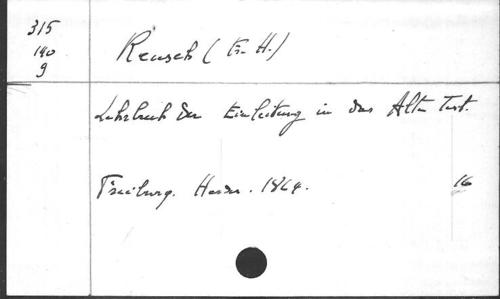 315
140
9
Reusch (Fr. H.)
Lehrbuch der Einleitung in das Alte Test.
Freiburg. Herder. 1864.
16